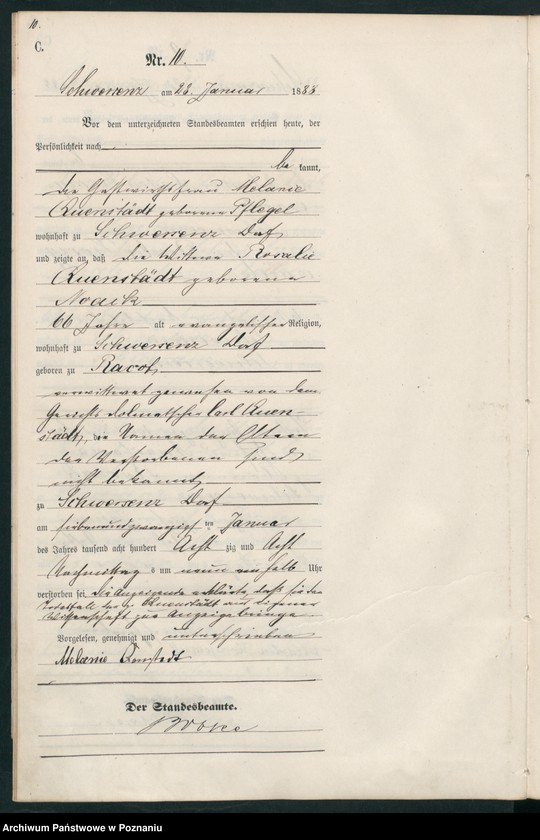 10.
C.
Nr. 10.
Schwersenz am 28. Januar 1888
Vor dem unterzeichneten Standesbeamten erschien heute, der
Persönlichkeit nach
be kannt,
die Gastwirthsfrau Melanie
Quenstädt geborene Pflegel
wohnhaft zu Schwersenz Dorf
und zeigte an, daß die Wittwe Rosalie
Quenstädt geborene
Noack
66 Jahre alt evangelischer Religion,
wohnhaft zu Schwersenz Dorf
geboren zu
verwittwet gewesen von dem
Gerichts Dolmetscher Carl Quen-
städt, die Namen der Eltern
der Verstorbenen sind
nicht bekannt
zu Schwersenz Dorf
am siebenundzwanzigsten Januar
des Jahres tausend acht hundert Acht zig und Acht
Nachmittag s um neun ein halb Uhr
verstorben sei. Die Anzeigende erklärte, daß sie den
Todesfall der p. Quenstädt aus eigener
Wissenschaft zur Anzeige bringe.
Vorgelesen, genehmigt und unterschrieben
Melanie Quenstedt
Der Standesbeamte.
Archiwum Państwowe w Poznaniu